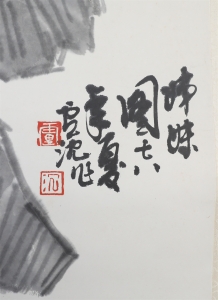 姊妹
圖七八
年夏
雲沈作